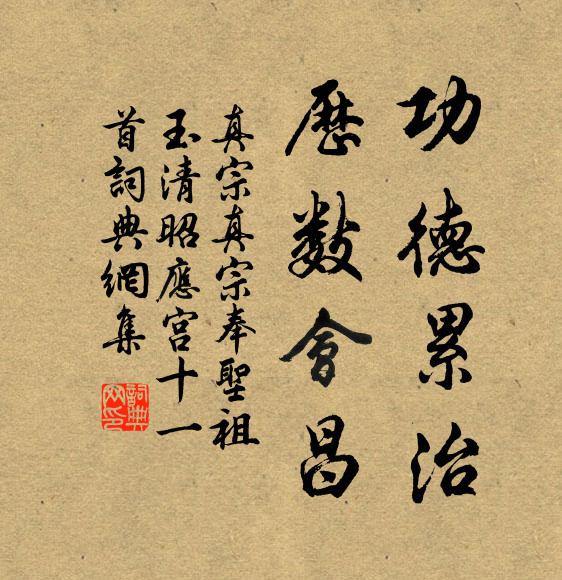 功德累治
歷數會昌
真宗真宗奉聖祖
玉清昭應宮十一
首詞典網集
詞典
网印